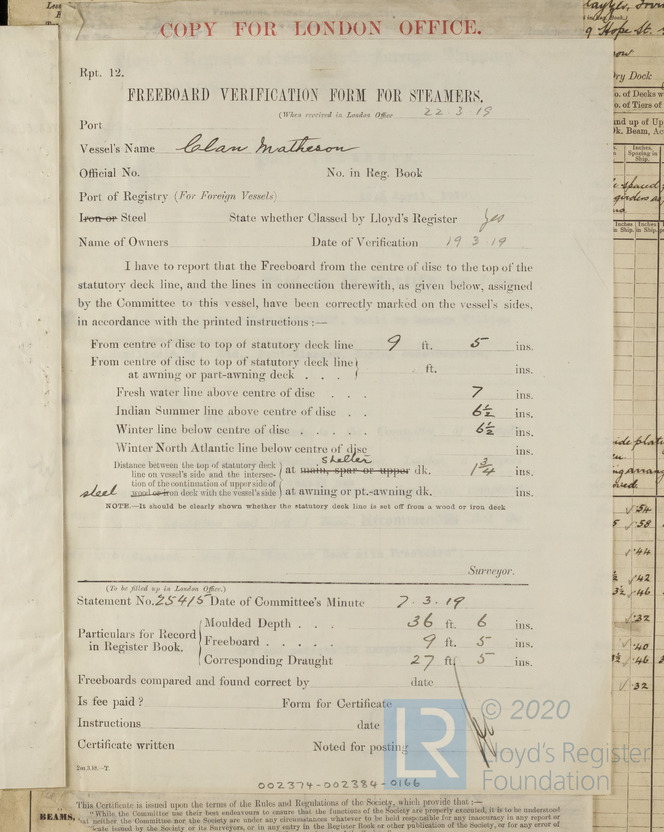 COPY FOR LONDON OFFICE.
Rpt. 12.
FREEBOARD VERIFICATION FORM FOR STEAMERS.
(When received in London Office 22 3 19
Port
Vessel's Name Clan Matheson
Official No. No. in Reg. Book
Port of Registry (For Foreign Vessels)
Iron or Steel State whether Classed by Lloyd's Register Yes
Name of Owners Date of Verification 19 3 19
I have to report that the Freeboard from the centre of disc to the top of the
statutory deck line, and the lines in connection therewith, as given below, assigned
by the Committee to this vessel, have been correctly marked on the vessel's sides,
in accordance with the printed instructions :—
From centre of disc to top of statutory deck line 9 ft. 5 ins.
From centre of disc to top of statutory deck line
at awning or part-awning deck . . . ft. ins.
Fresh water line above centre of disc . . . 7 ins.
Indian Summer line above centre of disc . . 6½ ins.
Winter line below centre of disc . . . . 6½ ins.
Winter North Atlantic line below centre of disc ins.
Distance between the top of statutory deck
line on vessel's side and the intersec-
tion of the continuation of upper side of
steel wood or iron deck with the vessel's side
Shelter
at main, spar or upper dk. 1¾ ins.
at awning or pt.-awning dk. ins.
NOTE.—It should be clearly shown whether the statutory deck line is set off from a wood or iron deck
Surveyor.
(To be filled up in London Office.)
Statement No. 25415 Date of Committee's Minute 7.3.19
Particulars for Record
in Register Book.
Moulded Depth . . . 36 ft. 6 ins.
Freeboard . . . . . 9 ft. 5 ins.
Corresponding Draught 27 ft. 5 ins.
Freeboards compared and found correct by date
Is fee paid ? Form for Certificate
Instructions date
Certificate written Noted for posting
002374-002384-0166
LR
© 2020
Lloyd's Register
Foundation
This Certificate is issued upon the terms of the Rules and Regulations of the Society, which provide that :—
BEAMS,
"While the Committee use their best endeavours to ensure that the functions of the Society are properly executed, it is to be understood
that neither the Committee nor the Society are under any circumstances whatever to be held responsible for any inaccuracy in any report or
issued by the Society or its Surveyors, or in any entry in the Register Book or other publication of the Society, or for any error of
Hope St.
Dry Dock
o. of Decks
o. of Tiers of
Inches,
Spacing in
Ship.